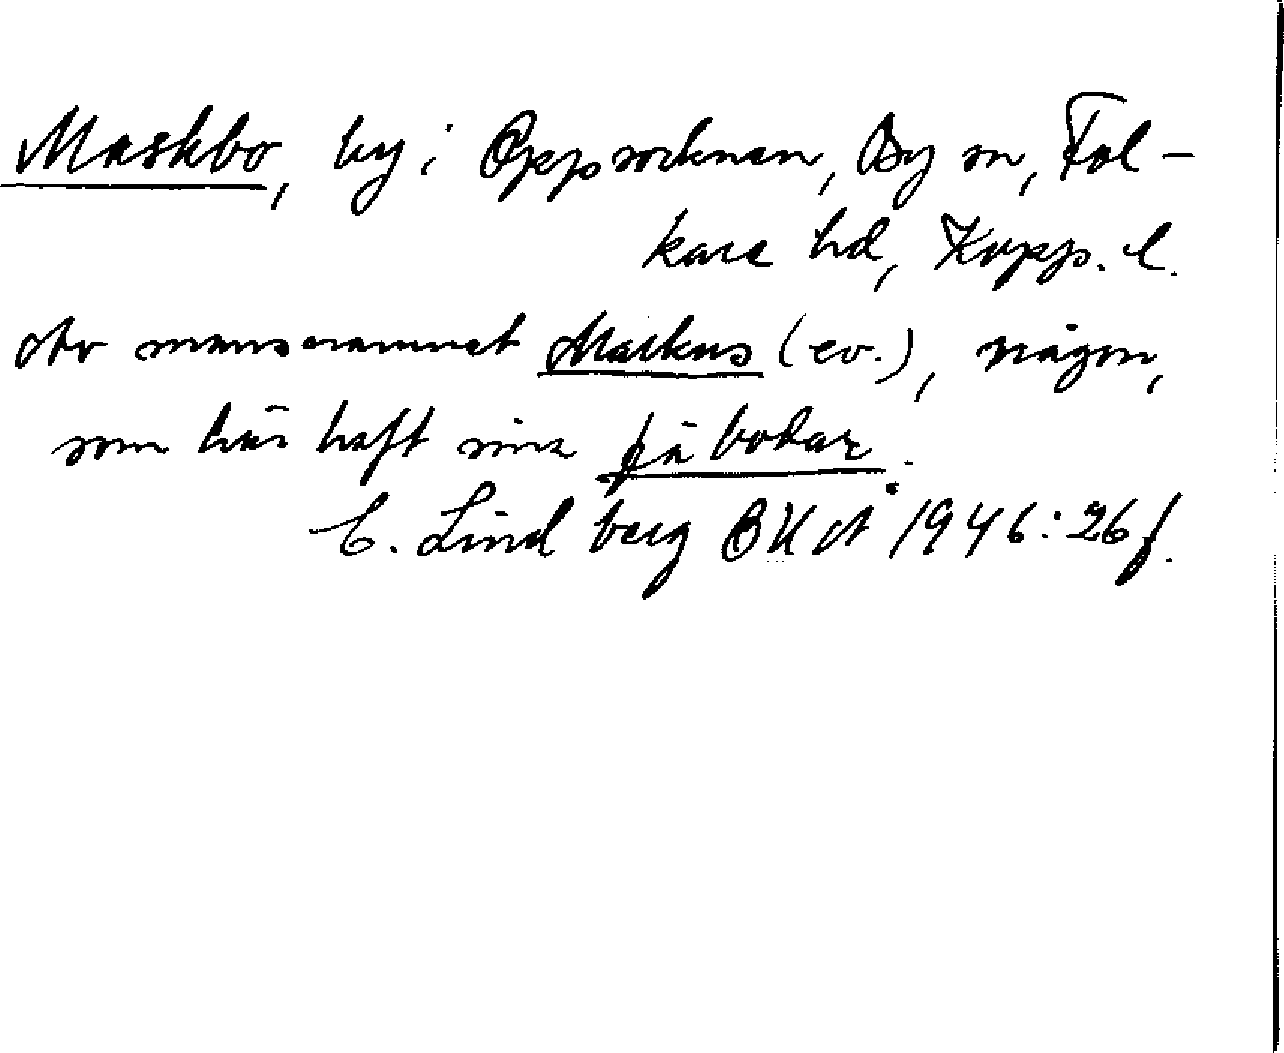 Maskbo, by i Oppsocknen, By sn, Fol-
kare hd, Kopp. l.
Av mansnamnet Markus (ev.), någon,
som här haft sina fäbodar.
C. Lindberg BKÅ 1946:26 f.